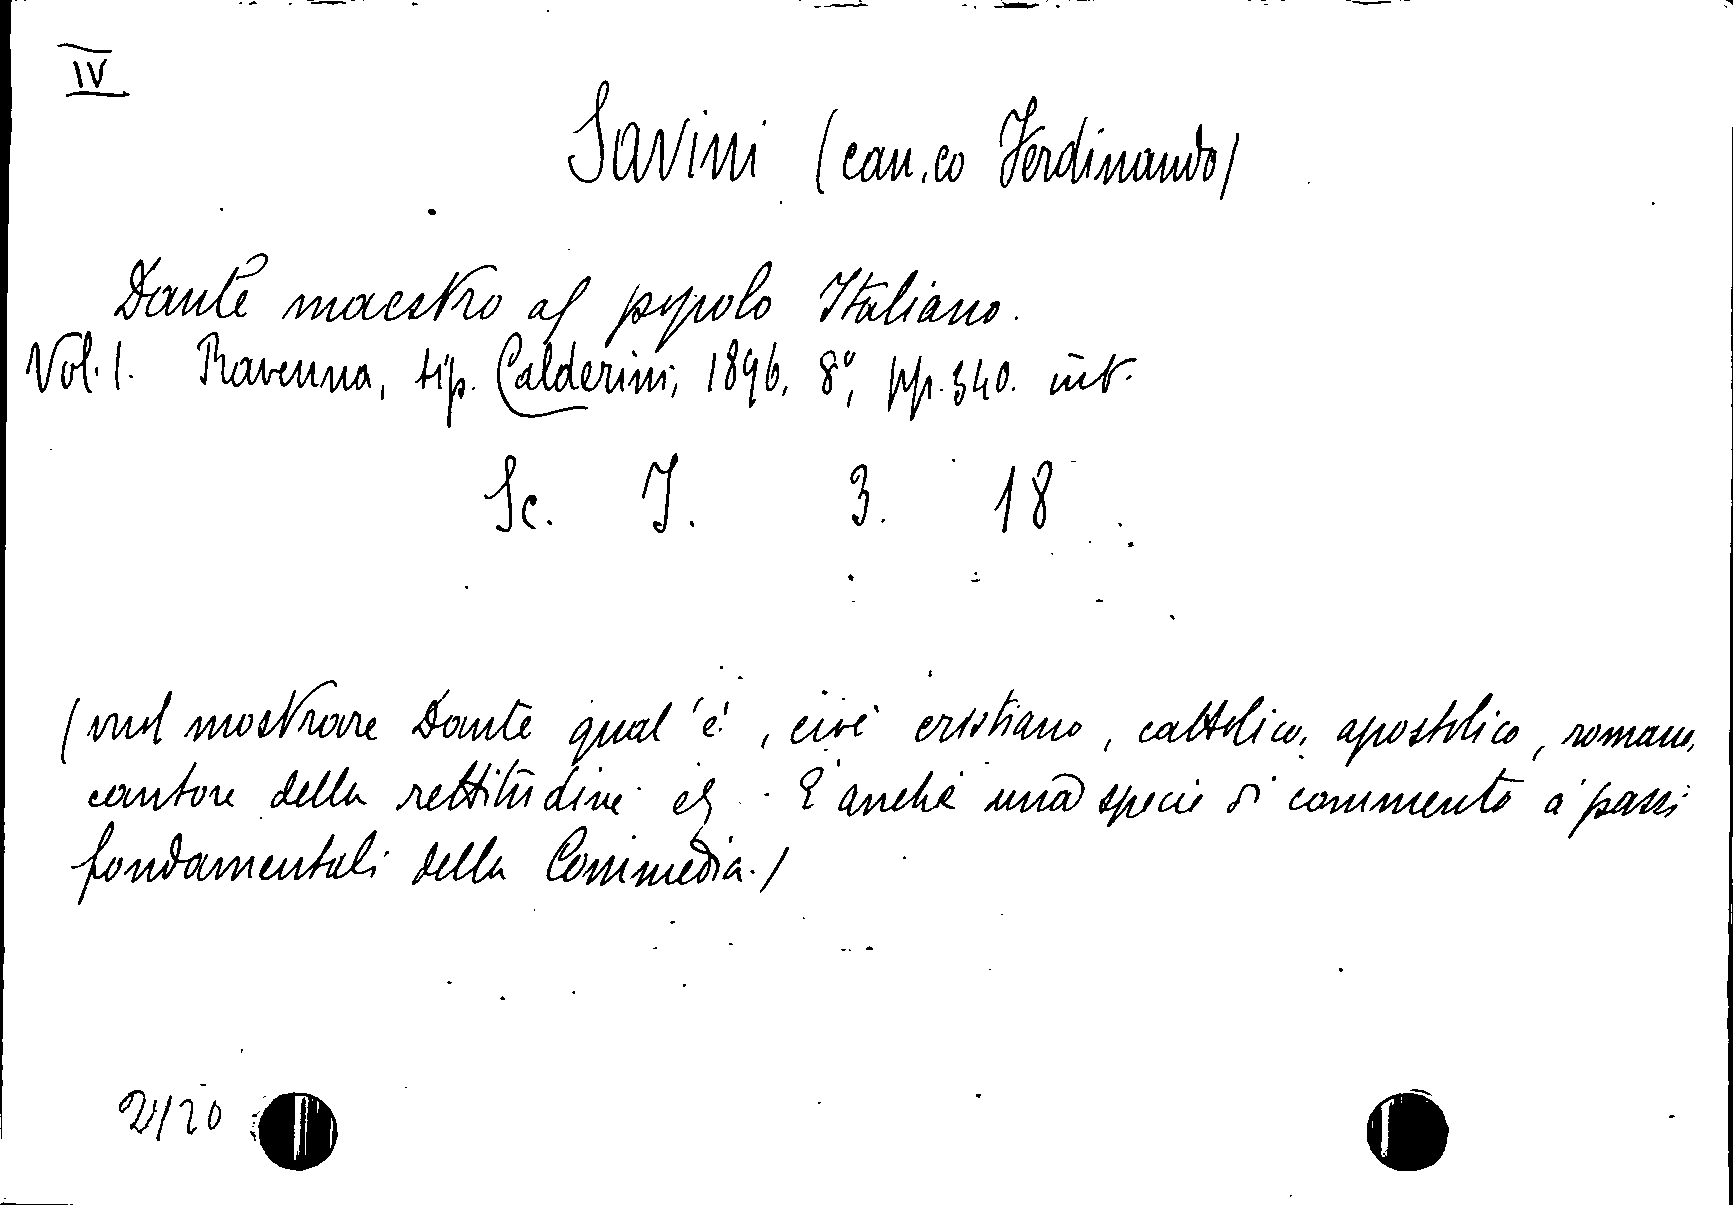 IV
Savini (can.co Ferdinando)
Dante maestro al popolo Italiano.
Vol. 1. Ravenna, tip. Calderini, 1896, 8°, pp. 340. int.
Sc. I. 3. 18
(vuol mostrare Dante qual'è, cioè cristiano, cattolico, apostolico, romano,
cantore della rettitudine. È anche una specie di commento a' passi
fondamentali della Commedia.)